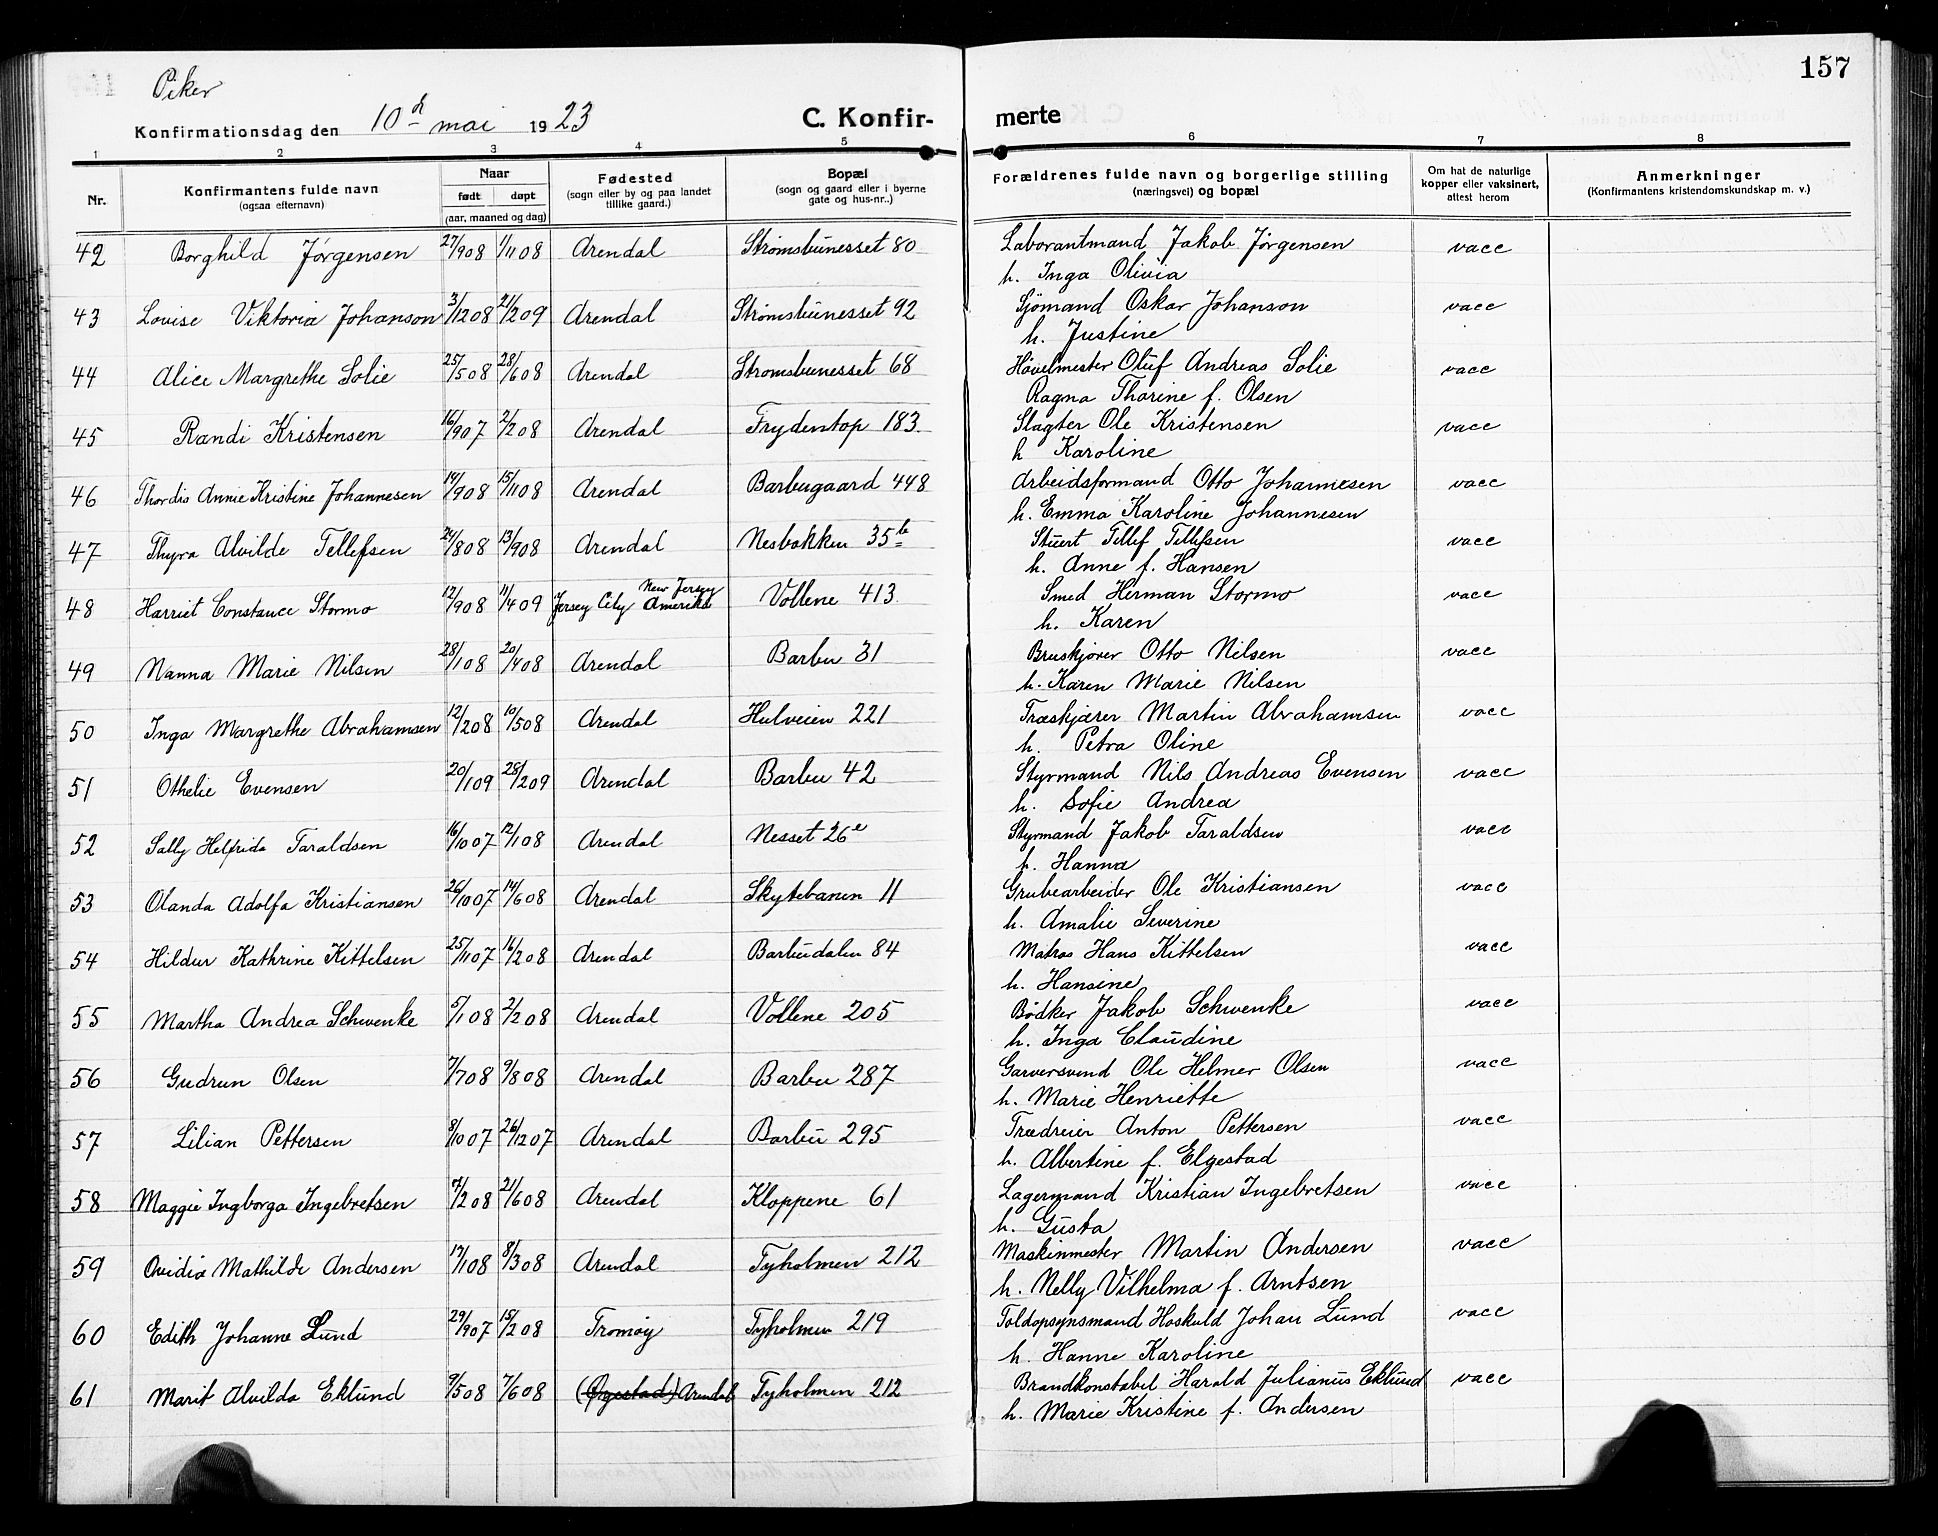 157
Piker
Konfirmationsdag den 10d mai 1923 C. Konfir- merte
1 2 3 4 5 6 7 8
Nr. Konfirmantens fulde navn (ogsaa efternavn) Naar født døpt (aar, maaned og dag) Fødested (sogn eller by og paa landet tillike gaard.) Bopæl (sogn og gaard eller i byerne gate og hus-nr..) Forældrenes fulde navn og borgerlige stilling (næringsvei) og bopæl Om hat de naturlige kopper eller vaksinert, attest herom Anmerkninger (Konfirmantens kristendomskundskap m. v.)
42 Borghild Jørgensen 27/9 08 1/11 08 Arendal Strømsbunesset 80 Laborantmand Jakob Jørgensen vacc
h. Inga Olivia
43 Lovise Viktoria Johanson 3/12 08 21/2 09 Arendal Strømsbunesset 92 Sjømand Oskar Johanson vacc
h. Justine
44 Alice Margrethe Solie 25/5 08 28/6 08 Arendal Strømsbunesset 68 Høvelmester Oluf Andreas Solie vacc
Ragna Thorine f. Olsen
45 Randi Kristensen 16/9 07 2/2 08 Arendal Frydentop 183 Slagter Ole Kristensen vacc
h Karoline
46 Thordis Annie Kristine Johannesen 14/9 08 15/11 08 Arendal Barbugaard 448 Arbeidsformand Otto Johannesen vacc
h. Emma Karoline Johannesen
47 Thyra Alvilde Tellefsen 24/8 08 13/9 08 Arendal Nesbakken 35b Stuert Tellef Tellefsen vacc
h. Anne f. Hansen
48 Harriet Constance Stormo 12/9 08 11/4 09 Jersey City New Jersey Amerika Vollene 413 Smed Herman Stormo vacc
h. Karen
49 Nanna Marie Nilsen 28/1 08 20/4 08 Arendal Barbu 31 Bruskjører Otto Nilsen vacc
h. Karen Marie Nilsen
50 Inga Margrethe Abrahamsen 12/2 08 10/5 08 Arendal Hulveien 221 Træskjærer Martin Abrahamsen vacc
h. Petra Oline
51 Othelie Evensen 20/1 09 28/2 09 Arendal Barbu 42 Styrmand Nils Andreas Evensen vacc
h. Sofie Andrea
52 Sally Helfrida Taraldsen 16/10 07 12/1 08 Arendal Nesset 26e Styrmand Jakob Taraldsen vacc
h. Hanna
53 Olanda Adolfa Kristiansen 26/10 07 14/6 08 Arendal Skytebanen 11 Grubearbeider Ole Kristiansen vacc
h. Amalie Severine
54 Hildur Kathrine Kittelsen 25/11 07 16/2 08 Arendal Barbudalen 84 Matros Hans Kittelsen vacc
h. Hansine
55 Martha Andrea Schwenke 5/1 08 2/2 08 Arendal Vollene 205 Bødker Jakob Schwenke vacc
h. Inga Claudine
56 Gudrun Olsen 7/7 08 9/8 08 Arendal Barbu 287 Garversvend Ole Helmer Olsen vacc
h. Marie Henriette
57 Lilian Pettersen 8/10 07 26/12 07 Arendal Barbu 295 Trædreier Anton Pettersen vacc
h. Albertine f. Elgestad
58 Maggie Ingborga Ingebretsen 7/2 08 21/6 08 Arendal Kloppene 61 Lagermand Kristian Ingebretsen vacc
h. Gusta
59 Ovidia Mathilde Andersen 17/1 08 8/3 08 Arendal Tyholmen 212 Maskinmester Martin Andersen vacc
h. Nelly Vilhelma f. Arntsen
60 Edith Johanne Lund 29/9 07 15/2 08 Tromøy Tyholmen 219 Toldopsynsmand Hoskuld Johan Lund vacc
h. Hanne Karoline
61 Marit Alvilda Eklund 9/5 08 7/6 08 (Øyestad) Arendal Tyholmen 212 Brandkonstabel Harald Julianus Eklund vacc
h. Marie Kristine f. Andersen